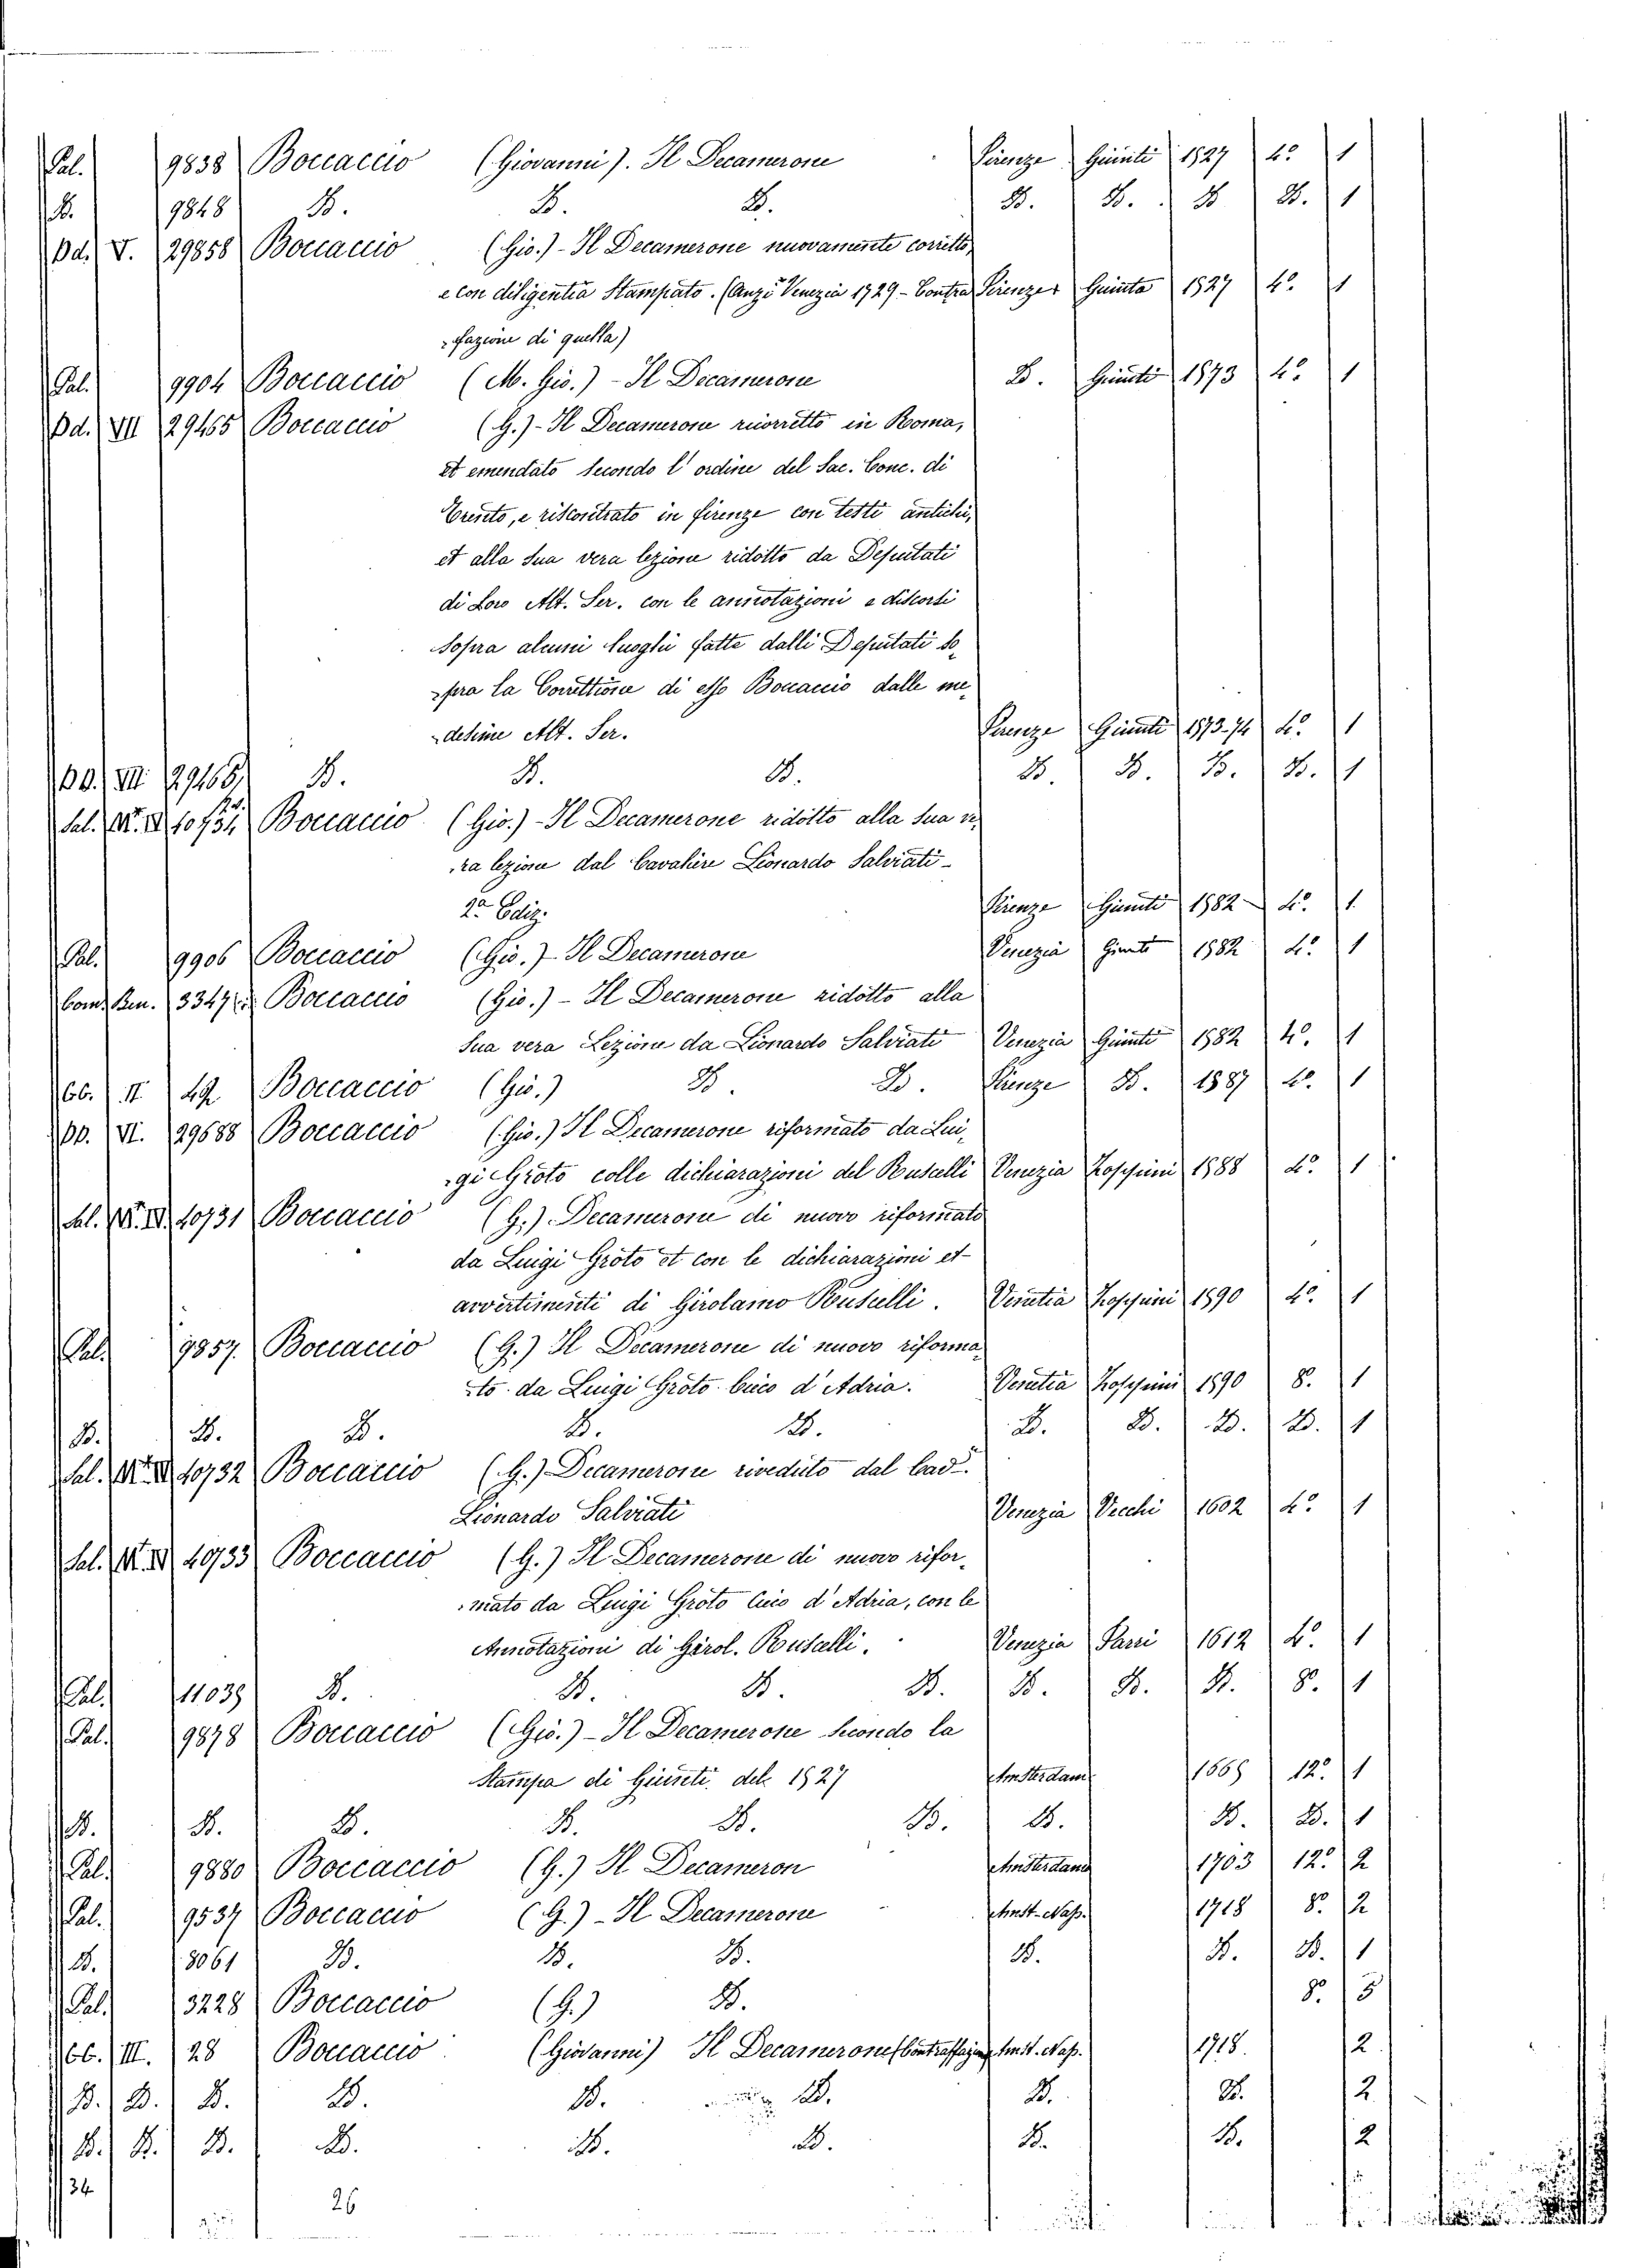 Pal. 9838 Boccaccio (Giovanni). Il Decamerone Firenze Giunti 1527 4º 1
D. 9848 D. D. D. D. D. D. D. 1
Pd. V. 29858 Boccaccio (Gio.) - Il Decamerone nuovamente corretto,
e con diligentia stampato. (Anzi Venezia 1729 - Contra Firenze Giunta 1527 4º 1
fazione di quella)
Pal. 9904 Boccaccio (M. Gio.) - Il Decamerone D. Giunti 1573 4º 1
Pd. VII 29465 Boccaccio (G.) - Il Decamerone ricorretto in Roma,
et emendato secondo l'ordine del Sac. Conc. di
Trento, e riscontrato in firenze con testi antichi,
et alla sua vera lezione ridotto da Deputati
di Loro Alt. Ser. con le annotazioni e discorsi
sopra alcuni luoghi fatte dalli Deputati so
pra la Correttione di esso Boccaccio dalle me
desime Alt. Ser. Firenze Giunti 1573-74 4º 1
Pd. VII 29465 D. D. D. D. D. D. D. 1
Sal. 10734 Boccaccio (Gio.) - Il Decamerone ridotto alla sua ve
ra lezione dal Cavaliere Lionardo Salviati -
2a Ediz. Firenze Giunti 1582 4º 1
Pal. 9906 Boccaccio (Gio.) - Il Decamerone Venezia Giunti 1582 4º 1
Com. Ren. 3347 Boccaccio (Gio.) - Il Decamerone ridotto alla
sua vera Lezione da Lionardo Salviati Venezia Giunti 1582 4º 1
66. II 49 Boccaccio (Gio.) D. D. Firenze D. 1587 4º 1
PD. VI. 29688 Boccaccio (Gio.) Il Decamerone riformato da Lui
gi Groto colle dichiarazioni del Ruscelli Venezia Zoppini 1588 4º 1
Sal. 10731 Boccaccio (G.) Decamerone di nuovo riformato
da Luigi Groto et con le dichiarazioni et
avvertimenti di Girolamo Ruscelli. Venetia Zoppini 1590 4º 1
Pal. 9857. Boccaccio (G.) Il Decamerone di nuovo riforma
to da Luigi Groto cieco d'Adria. Venetia Zoppini 1590 8. 1
D. D. D. D. D. D. D. D. D. 1
Sal. 10732 Boccaccio (G.) Decamerone riveduto dal Cad.
Lionardo Salviati Venezia Vecchi 1602 4º 1
Sal. 10733 Boccaccio (G.) Il Decamerone di nuovo rifor
mato da Luigi Groto Cieco d'Adria, con le
Annotazioni di Girol. Ruscelli. Venezia Farri 1612 4º 1
Pal. 11039 D. D. D. D. D. D. D. 8º 1
Pal. 9878 Boccaccio (Gio.) - Il Decamerone secondo la
stampa di Giunti del 1527 Amsterdam 1665 12º 1
D. D. D. D. D. D. D. D. D. 1
Pal. 9880 Boccaccio (G.) Il Decameron Amsterdam 1703 12º 2
Pal. 9537 Boccaccio (G.) - Il Decamerone Amst-Nap. 1718 8º 2
D. 8061 D. D. D. D. D. D. 1
Pal. 3228 Boccaccio (G.) D. 8º 5
66. III. 28 Boccaccio (Giovanni) Il Decamerone (Contraffazione Amst. Nap. 1718. 2
D. D. D. D. D. D. D. D. 2
D. D. D. D. D. D. D. D. 2
34
26